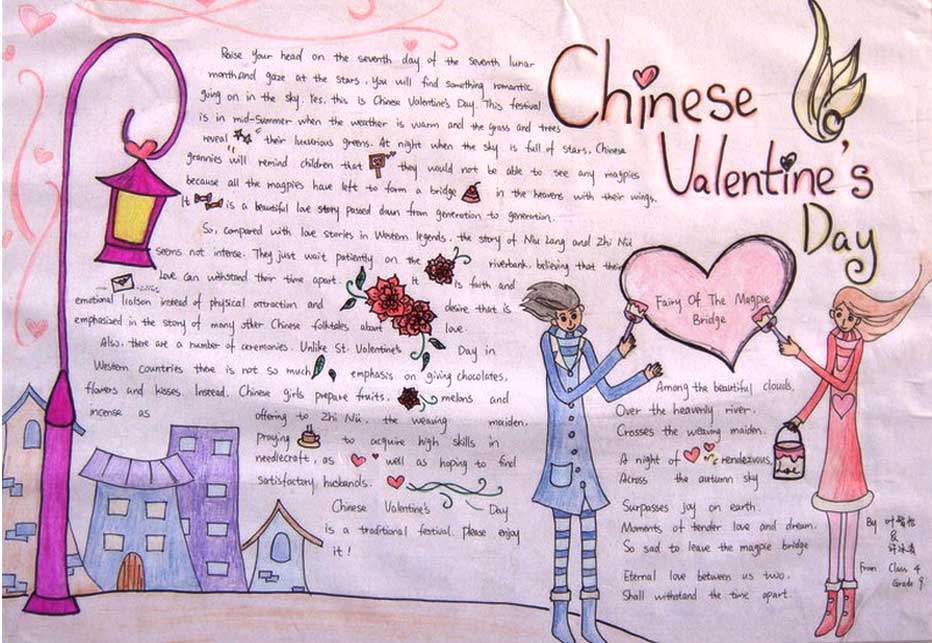 Chinese
Valentine's
Day
Raise your head on the seventh day of the seventh lunar
month and gaze at the stars. You will find something romantic
going on in the sky. Yes, this is Chinese Valentine's Day. This festival
is in mid-summer when the weather is warm and the grass and trees
reveal their luxurious greens. At night when the sky is full of stars, Chinese
grannies will remind children that they would not be able to see any magpies
because all the magpies have left to form a bridge in the heavens with their wings.
It is a beautiful love story passed down from generation to generation.
So, compared with love stories in Western legends, the story of Niu Lang and Zhi Nü
seems not intense. They just wait patiently on the riverbank, believing that their
Love can withstand their time apart. It is faith and
emotional liaison instead of physical attraction and desire that is
emphasized in the story of many other Chinese folktales about love.
Also, there are a number of ceremonies. Unlike St. Valentine's Day in
Western countries there is not so much emphasis on giving chocolates,
flowers and kisses. Instead, Chinese girls prepare fruits, melons and
incense as offering to Zhi Nü, the weaving maiden,
praying to acquire high skills in
needlecraft, as well as hoping to find
satisfactory husbands.
Chinese Valentine's Day
is a traditional festival. Please enjoy
it!
Fairy Of The Magpie
Bridge
Among the beautiful clouds,
Over the heavenly river,
Crosses the weaving maiden.
A night of rendezvous,
Across the autumn sky
Surpasses joy on earth.
Moments of tender love and dream.
So sad to leave the magpie bridge
Eternal love between us two,
Shall withstand the time apart.
Love
By 叶
From Class 4
Grade 9